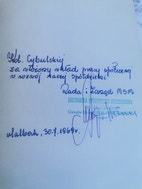 Kol. Cybulskiej
za włożony wkład pracy społecznej
w rozwój naszej Spółdzielni.
Rada i Zarząd MSM
Malbork, 30.9.1969 r.